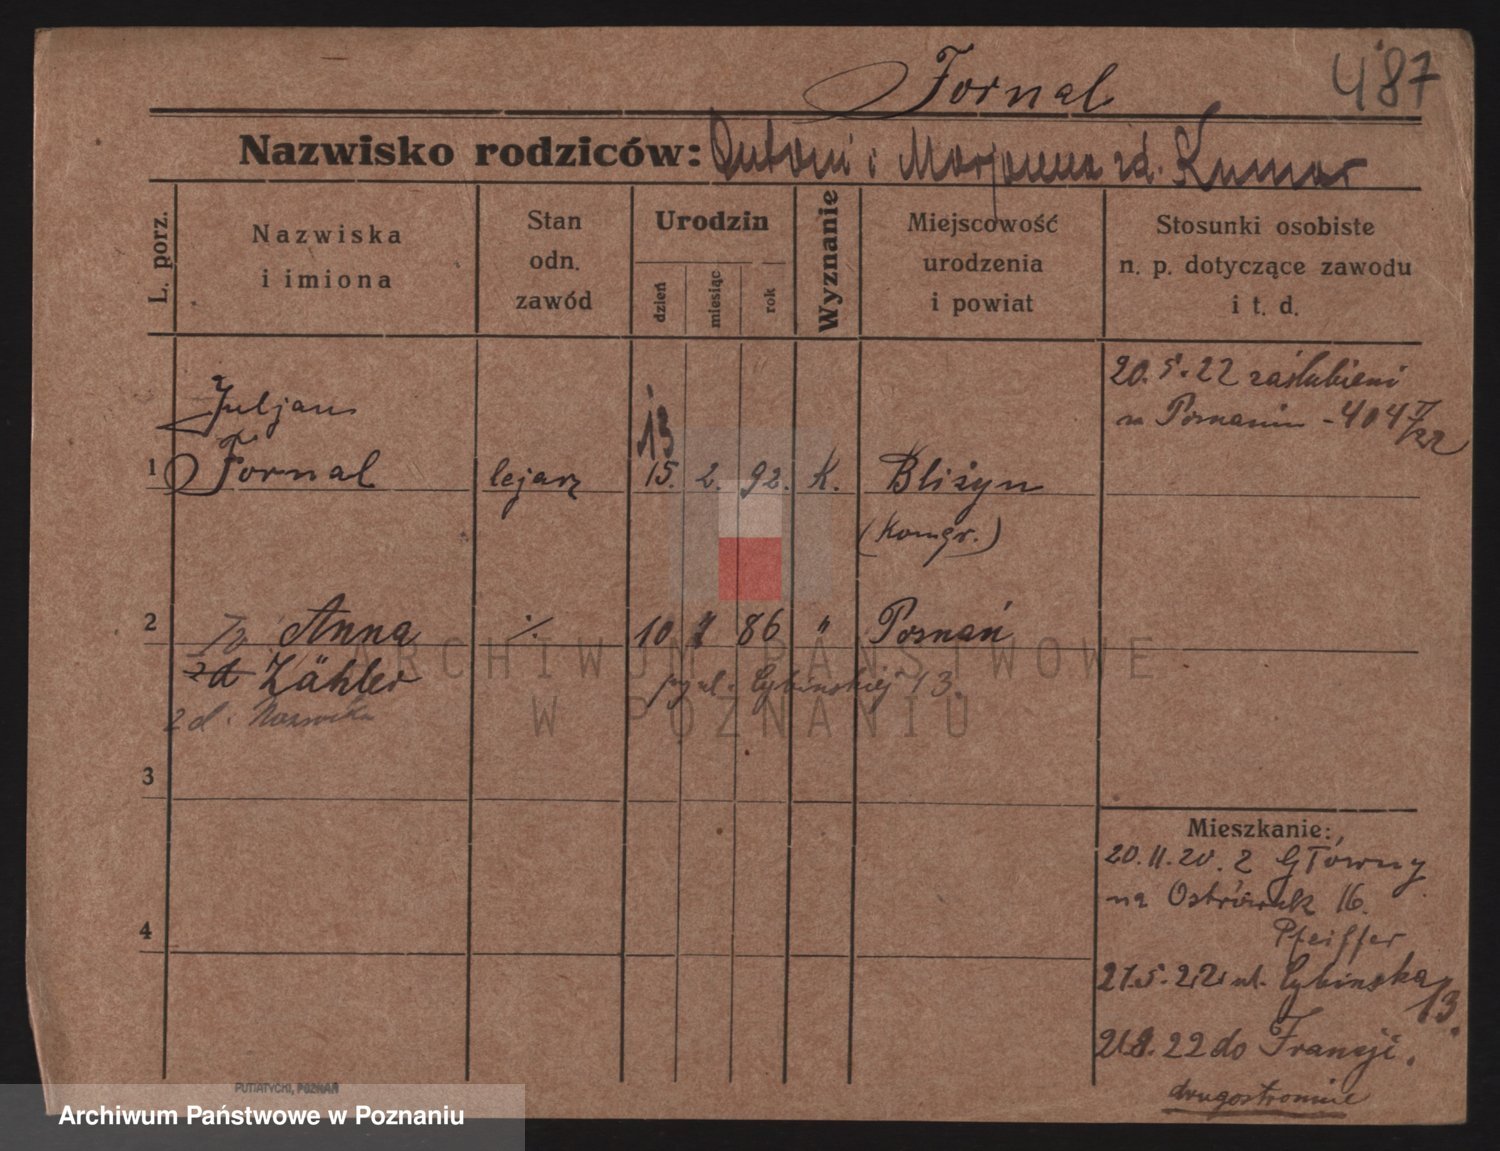 Fornal
487
Nazwisko rodziców: Antoni i Marjanna zd. Kumor
L. porz.
Nazwiska
i imiona
Stan
odn.
zawód
Urodzin
dzień
miesiąc
rok
Wyznanie
Miejscowość
urodzenia
i powiat
Stosunki osobiste
n. p. dotyczące zawodu
i t. d.
20.5.22 zaślubieni
w Poznaniu - 404 II/22
Juljan
13
1 Fornal lejarz 15. 2. 92. K. Bliżyn
(Kongr.)
2 Anna ./. 10 86 " Poznań
zd Zähler
ul. Cybińskiej 13.
zd. Nazwiska
3
4
Mieszkanie:
20.11.20. z Główny
na Ostrówek 16.
Pfeiffer
27.5.22 ul. Cybinska
13.
22 do Francji.
drugostronnie
PUTIATYCKI, POZNAŃ
ARCHIWUM PAŃSTWOWE
W POZNANIU
Archiwum Państwowe w Poznaniu